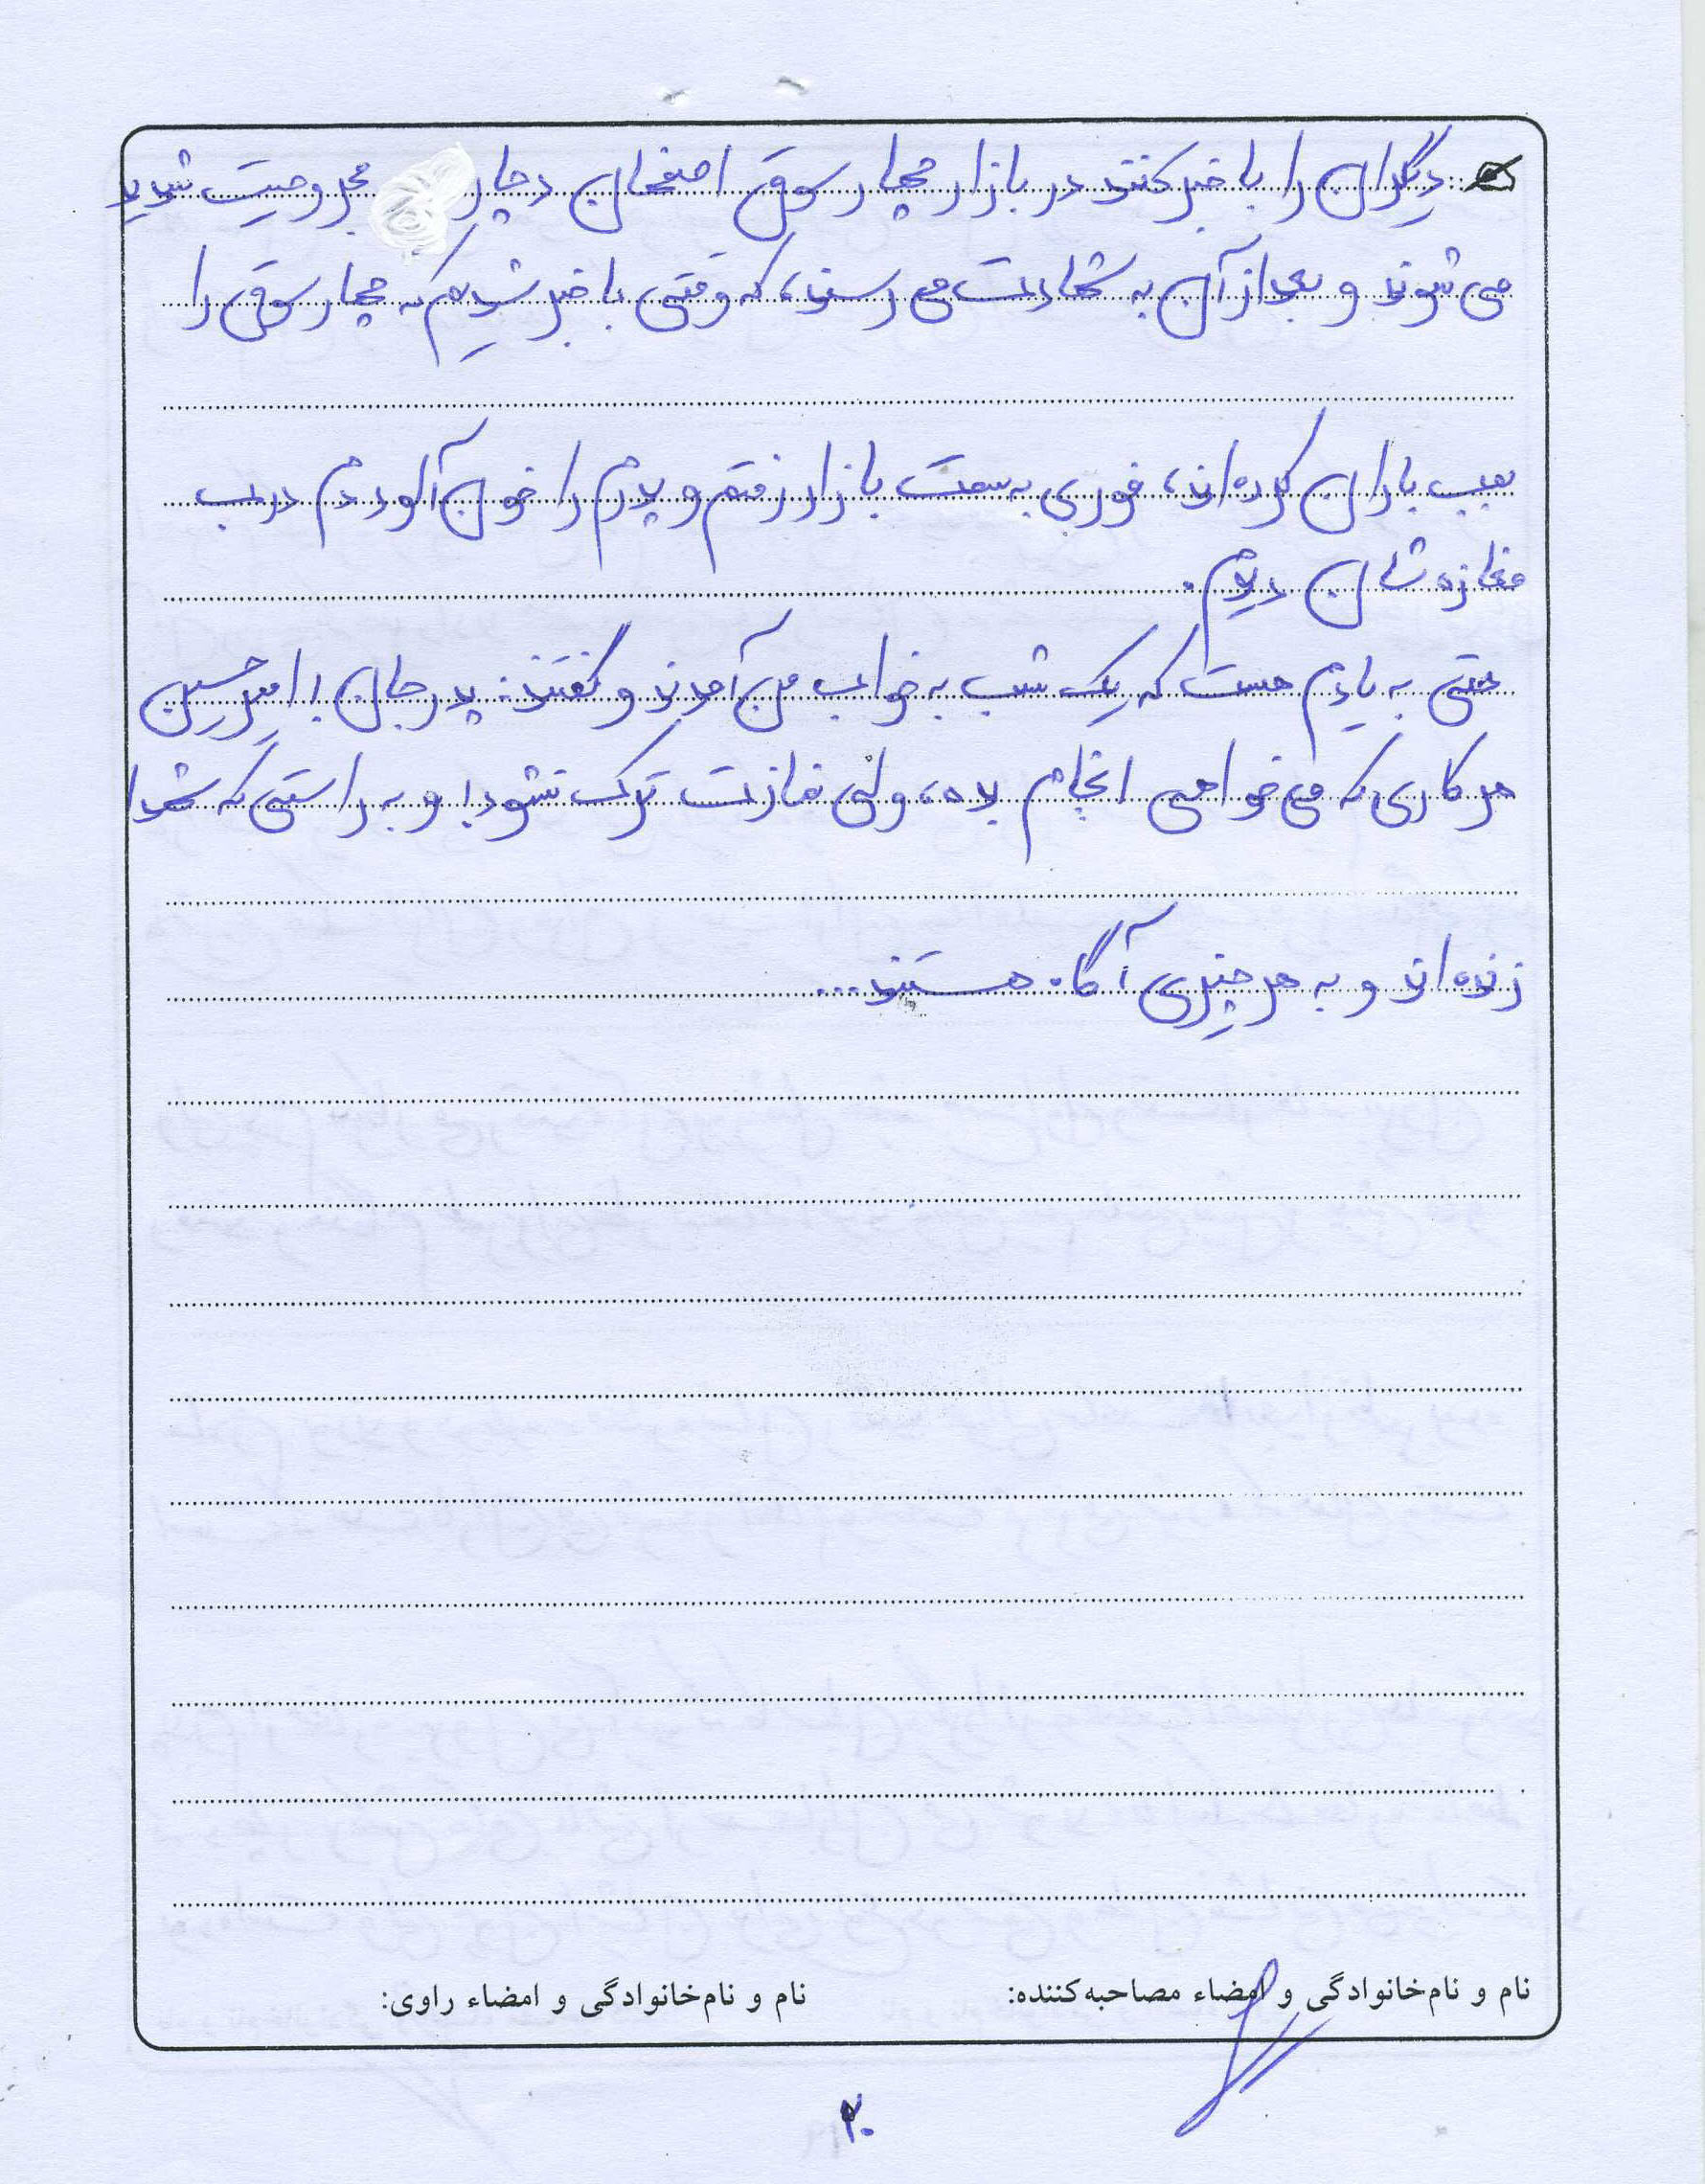 دیگران را با خبر کنند در بازار چهار سوق اصفهان دچار مجروحیت شدید
می شوند و بعد از آن به شهادت می رسند، که وقتی با خبر شدیم که چهار سوق را
بمب باران کرده‌اند، فوری به سمت بازار رفتم و پدرم را خون آلود دم درب
مغازه شان دیدم.
حتی به یادم هست که یک شب به خواب من آمدند و گفتند: پدر جان! امیرحسین
هر کاری که می خواهی انجام بده، ولی نمازت ترک نشود! و به راستی که شهدا
زنده‌اند و به هر چیزی آگاه هستند...
نام و نام‌خانوادگی و امضاء مصاحبه‌کننده: نام و نام‌خانوادگی و امضاء راوی:
۲۰